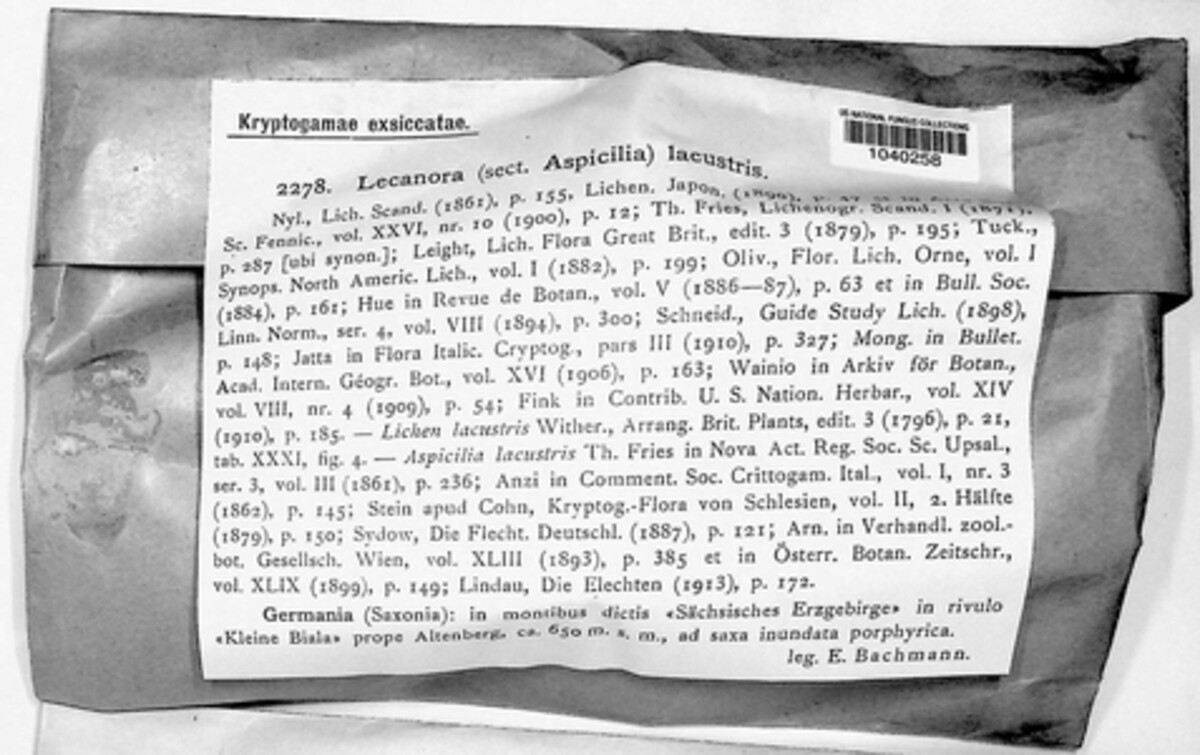 Kryptogamae exsiccatae.
US-NATIONAL FUNGUS COLLECTIONS
1040258
2278. Lecanora (sect. Aspicilia) lacustris.
Nyl., Lich. Scand. (1861), p. 155, Lichen. Japon. (1890), p.
Sc. Fennic., vol. XXVI, nr. 10 (1900), p. 12; Th. Fries, Lichenogr. Scand. I (1871),
p. 287 [ubi synon.]; Leight, Lich. Flora Great Brit., edit. 3 (1879), p. 195; Tuck.,
Synops. North Americ. Lich., vol. I (1882), p. 199; Oliv., Flor. Lich. Orne, vol. I
(1884), p. 161; Hue in Revue de Botan., vol. V (1886—87), p. 63 et in Bull. Soc.
Linn. Norm., ser. 4, vol. VIII (1894), p. 300; Schneid., Guide Study Lich. (1898),
p. 148; Jatta in Flora Italic. Cryptog., pars III (1910), p. 327; Mong. in Bullet.
Acad. Intern. Géogr. Bot., vol. XVI (1906), p. 163; Wainio in Arkiv för Botan.,
vol. VIII, nr. 4 (1909), p. 54; Fink in Contrib. U. S. Nation. Herbar., vol. XIV
(1910), p. 185. — Lichen lacustris Wither., Arrang. Brit. Plants, edit. 3 (1796), p. 21,
tab. XXXI, fig. 4. — Aspicilia lacustris Th. Fries in Nova Act. Reg. Soc. Sc. Upsal.,
ser. 3, vol. III (1861), p. 236; Anzi in Comment. Soc. Crittogam. Ital., vol. I, nr. 3
(1862), p. 145; Stein apud Cohn, Kryptog.-Flora von Schlesien, vol. II, 2. Hälfte
(1879), p. 150; Sydow, Die Flecht. Deutschl. (1887), p. 121; Arn. in Verhandl. zool.-
bot. Gesellsch. Wien, vol. XLIII (1893), p. 385 et in Österr. Botan. Zeitschr.,
vol. XLIX (1899), p. 149; Lindau, Die Elechten (1913), p. 172.
Germania (Saxonia): in montibus dictis «Sächsisches Erzgebirge» in rivulo
«Kleine Biala» prope Altenberg, ca. 650 m. s. m., ad saxa inundata porphyrica.
leg. E. Bachmann.